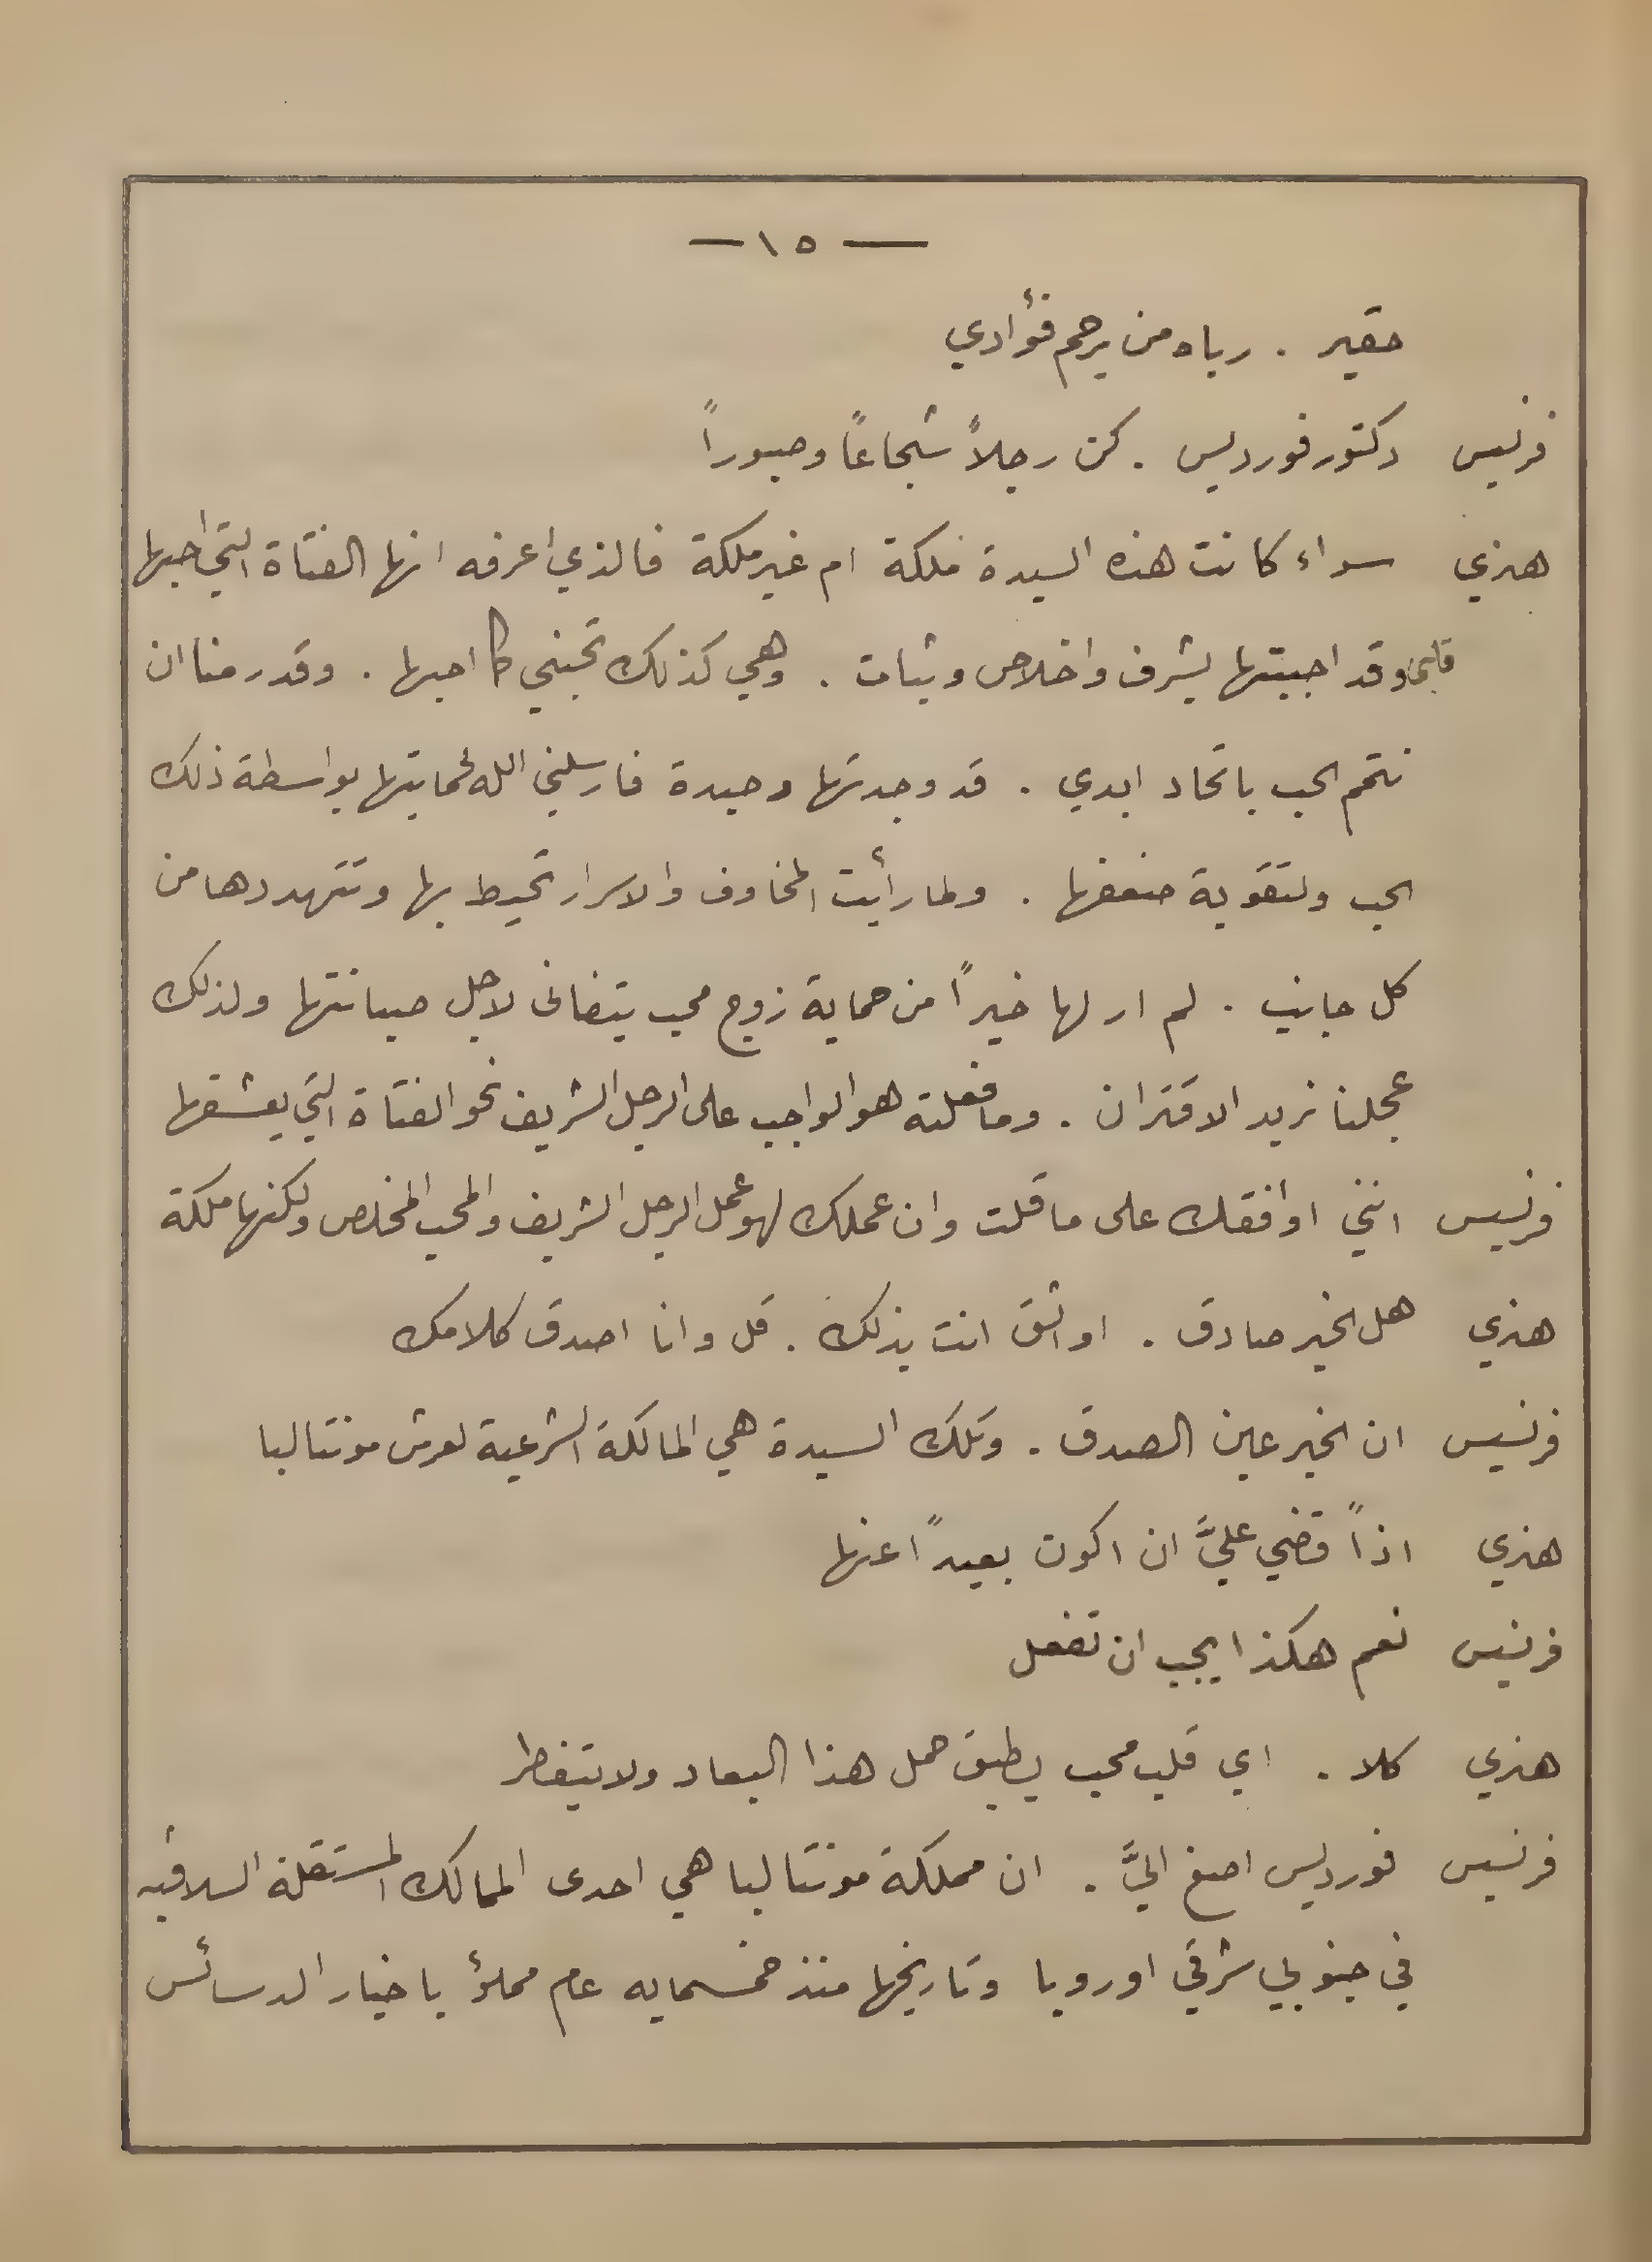 — ١٥ —
حقير . رباه من يرحم فؤادي
فرنسيس دكتور فورديس . كن رجلاً شجاعاً وصبوراً
هنري سواء كانت هذه السيدة ملكة ام غير ملكة فالذي اعرفه انها الفتاة التي احبها
قلبي وقد احببتها بشرف واخلاص وثبات . وهي كذلك تحبني كما احبها . وقدر منا ان
نتمم الحب باتحاد ابدي . قد وجدتها وحيدة فارسلني الله لحمايتها بواسطة ذلك
الحب ولتقوية ضعفها . ولما رأيت المخاوف والاسرار تحيط بها وتتهددها من
كل جانب . لم ار لها خيراً من حماية زوج محب يتفانى لاجل صيانتها ولذلك
عجلنا نريد الاقتران . وما فعلته هو الواجب على الرجل الشريف نحو الفتاة التي يعشقها
فرنسيس انني اوافقك على ما قلت وان عملك لهو عمل الرجل الشريف والمحب المخلص ولكنها ملكة
هنري هل الخبر صادق . اواثق انت بذلك . قل وانا اصدق كلامك
فرنسيس ان الخبر عين الصدق . وتلك السيدة هي المالكة الشرعية لعرش مونتاليا
هنري اذاً قضي عليَّ ان اكون بعيداً عنها
فرنسيس نعم هكذا يجب ان تفعل
هنري كلا . اي قلب محب يطيق حمل هذا البعاد ولا يتفطر
فرنسيس فورديس اصغ اليَّ . ان مملكة مونتاليا هي احدى الممالك المستقلة السلافيه
في جنوبي شرقي اوروبا وتاريخها منذ خمسمايه عام مملؤ باخبار الدسائس